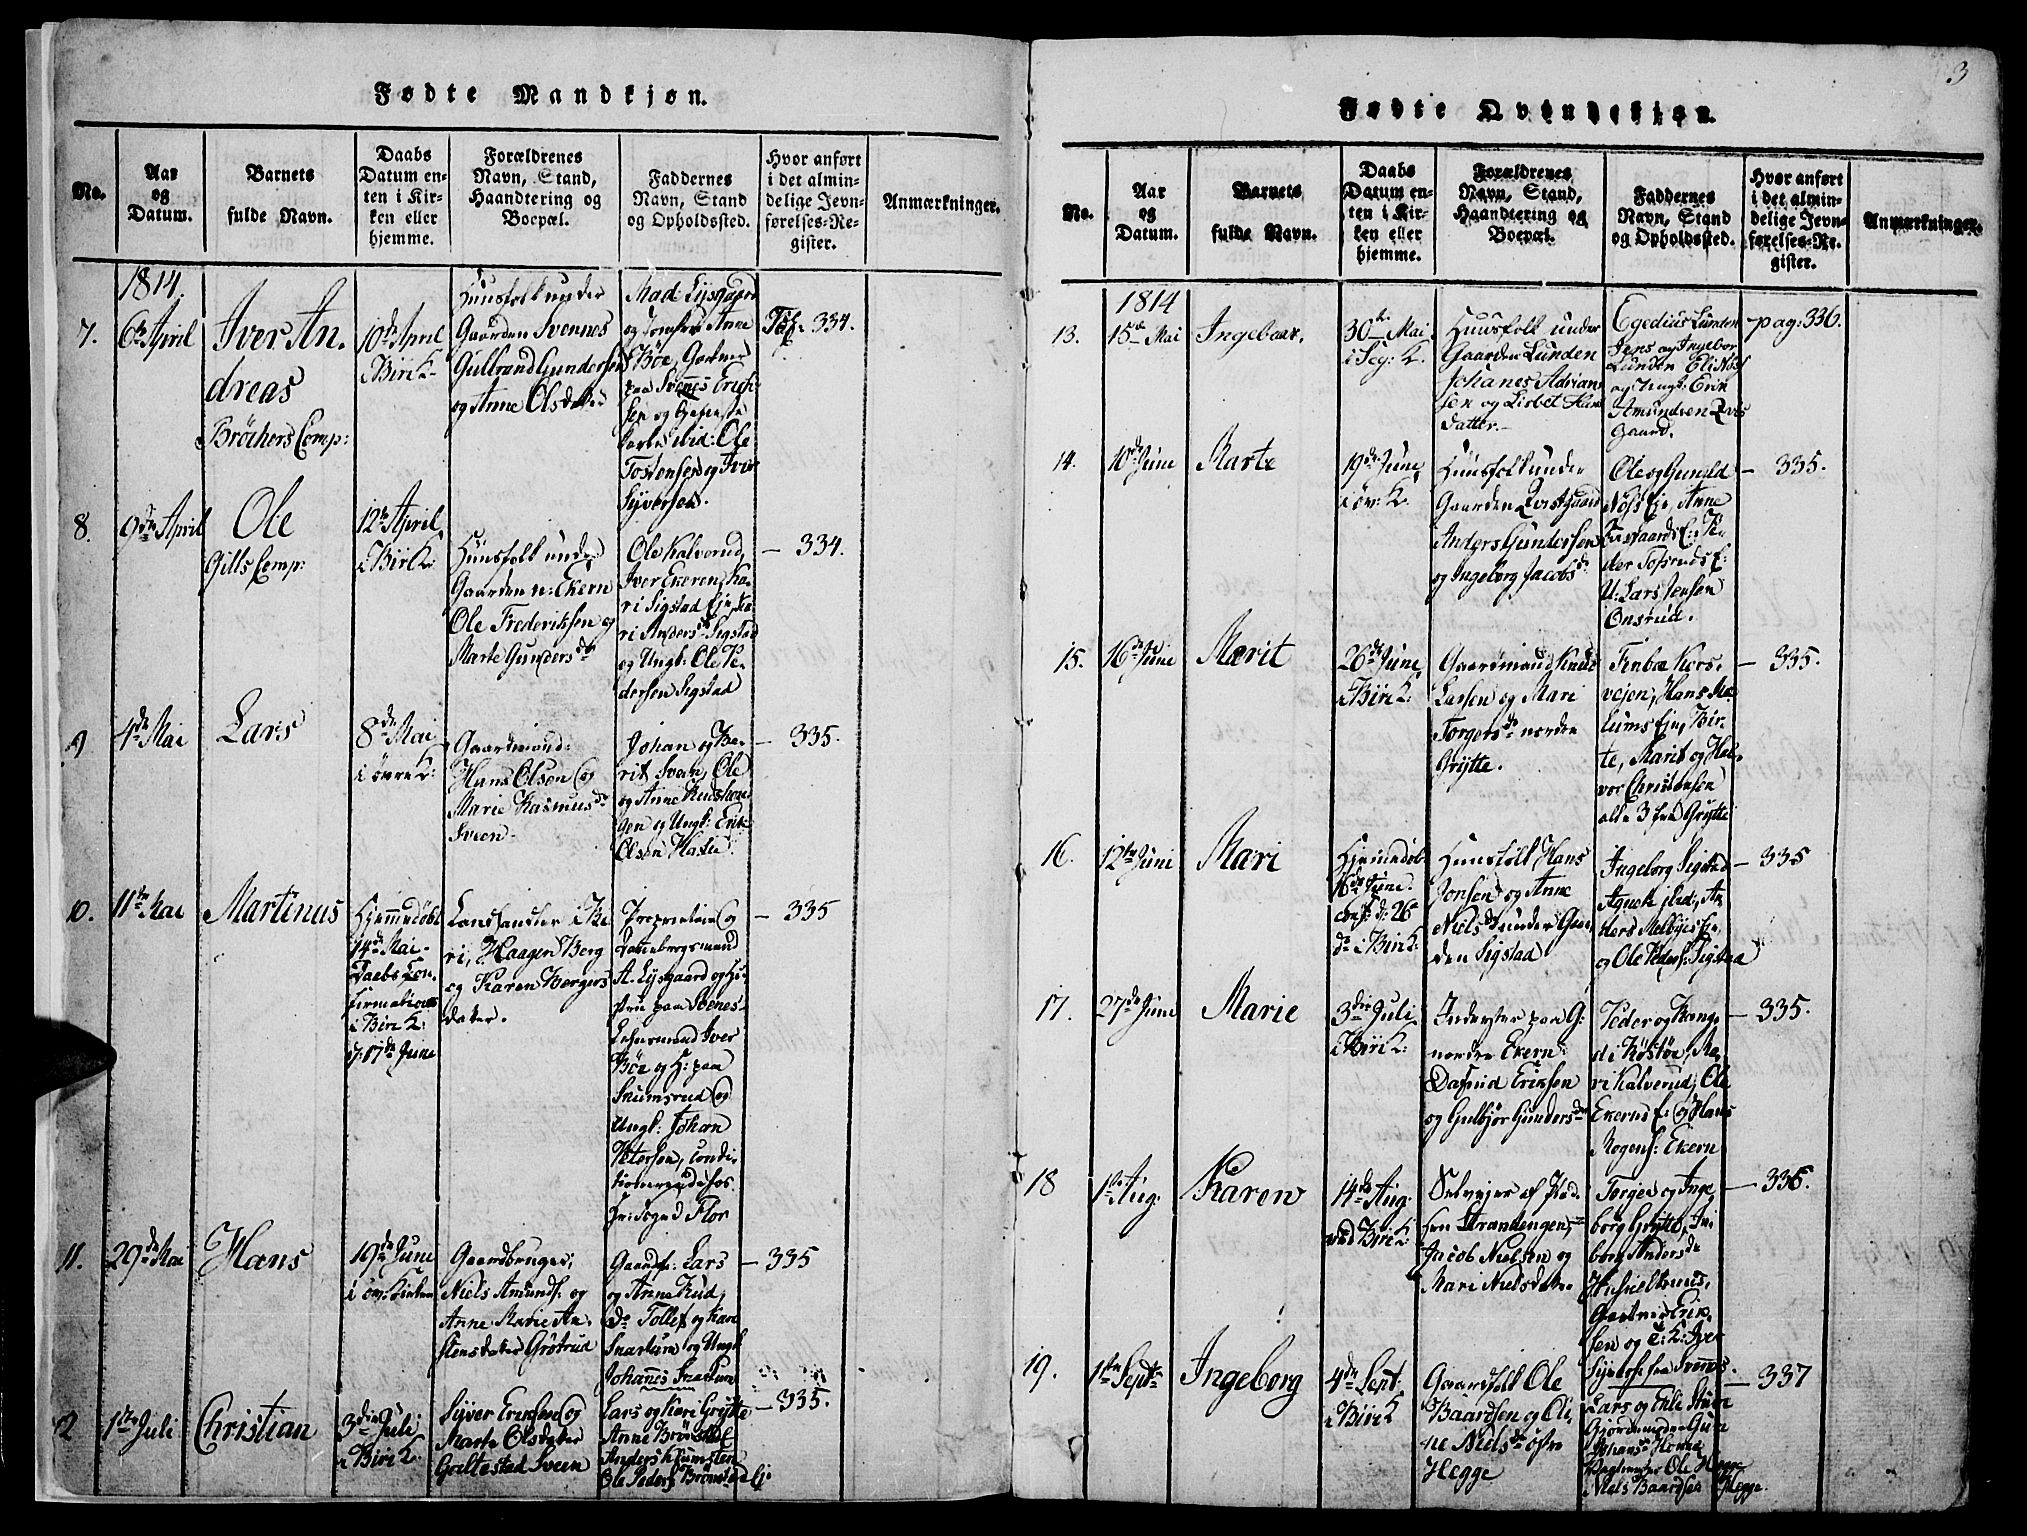 Fødte Mandkjøn.
No.
Aar
og
Datum.
Barnets
fulde Navn.
Daabs
Datum en-
ten i Kir-
ken eller
hjemme.
Forældrenes
Navn, Stand,
Haandtering og
Boepæl.
Faddernes
Navn, Stand
og Opholdssted.
Hvor anført
i det almin-
delige Jevn-
førelses-Re-
gister.
Anmærkninger.
1814.
7.
6te April
Iver An-
dreas
Bröchers Comp:
10de April
i Biri K.
Huusfolk under
Gaarden Svennes
Gulbrand Gundersen
og Anne Olsdatter
Mad Lysgaard
og Jomfrue Anne
Böe, Gartner
paa Svenes Erich-
sen og
ibid: Ole
Tostensen og Iver
Syversen.
334.
8.
9de April
Ole
Gills Comp:
12te April
i Biri K:
Huusfolk under
Gaarden n: Ekern
Ole Frederiksen og
Marte Gundersdr
Ole Kalverud,
Iver Ekeren, Ka-
ri Sigstad Eje, Ka-
ri Andersdr Sigstad
og Ungk: Ole Pe-
dersen Sigstad
— 334.
9
4de Mai
Lars
8de Mai
i övre K:
Gaardmand:
Hans Olsen og
Marie Rasmusdr
Sveen
Johan og Be-
rit Sveen, Ole
og Anne
gen og Ungk: Erik
Olsen
— 335.
10.
11te Mai
Martinus
Hjemmedöbt
14de Mai
Daabs Con-
firmationen
i Biri K:
d: 17de June
Landhandler i Bi-
ri, Haagen Berg
og Karen Bergers
datter.
Proprietair og
Dannebrogsmand
A. Lysgaard og Hu-
strue paa Svenes
Lehnsmand Iver
Böe og H: paa
Snumsrud og
Ungk: Johan
Petersen, condi-
tionerende hos
Hr: Sogned Flor
— 335
11.
29de Mai
Hans
19de June
i övr: Kirken
Gaardbruger;
Niels Amunds. og
Anne Marie An-
stensdatter Grötrud
Gaardf: Lars
og Anne Rud,
do Tollef og Kari
Snartum og Ungk
Johannes Snartum
— 335
12
1ste Juli
Christian
3die Juli
i Biri K:
Syver Eriksen og
Marte Olsdatter
Galtestad Sveen
Lars og Kari Grytte
Anne Brönstad
Anders Klumsten
Ole Peders: Brönstad Ej
— 335.
3
Fødte Qvindekjøn.
No.
Aar
og
Datum.
Barnets
fulde Navn.
Daabs
Datum en-
ten i Kir-
ken eller
hjemme.
Forældrenes
Navn, Stand,
Haandtering og
Boepæl.
Faddernes
Navn, Stand
og Opholdssted.
Hvor anført
i det almin-
delige Jevn-
førelses-Re-
gister.
Anmærkninger.
1814
13.
15de Mai
Ingebaar.
30te Mai
i K.
Huusfolk under
Gaarden Lunden
Johanes Adrian-
sen og Lisbet Hans
datter.
Egedius Lunden
Jens og Ingebor
Lunden Eli
og Ungk: Erik
Amundsen
Gaard.
pag: 336.
14.
10de June
Marte
19de June
i övr. K.
Huusfolk under
Gaarden Qvistgaard
Anders Gundersen
og Ingeborg Jacobsdr
Ole og Gunild
Eje, Anne
Qvistgaards E: Pe-
der E:
U: Lars Jensen
Onsrud.
— 335.
15.
16de June
Marit
26de June
i Biri K:
Gaardmand Knud
Larsen og Mari
Torgersdr nordre
Grytte.
Simbæ Kors-
vejen, Hans Me-
lums Eje, Bir-
te, Marit og Hal-
vor Christensen
alle 3 fra Grytte
— 335.
16.
12te Juni
Mari
Hjemmedöbt
16de June
conf: d: 26e
do i Biri K:
Huusfolk Hans
Jonsen og Anne
Nielsdr under Gaar-
den Sigstad
Ingeborg Sigstad
ibid:, An-
ders Melbyes Eje,
og Ole Peders: Sigstad
— 335
17.
27de June
Marie
3die Juli
i Biri K:
Inderster paa G:
nordre Ekern:
Dafind Eriksen
og Gulbjör Gundersdr
Peder og Ronge-
di Röstöe, Ma-
ri Kalverud, Ole
Ekerns E: og Hans
Mogens: Ekern
— 335.
18
1ste Aug:
Karen
14de Aug:
ved Biri K:
Selvejer af Plad-
sen Strandengen,
Jacob Nielsen og
Mari Nielsdatter
Torger og Inge-
borg Grytte, In-
borg Andersdr
Gartner Erik-
sen og E: K: Iver
Syvers: fra Svennes.
— 336.
19.
1ste Septr
Ingeborg
4de Sept.
i Biri K
Gaardfolk Ole
Baardsen og Oli-
ne Nielsdr övre
Hegge
Lars og Eli Stuen
Gjordemoder Gun
Honne
Ole Hegge
Niels Baardsen Hegge.
— 337